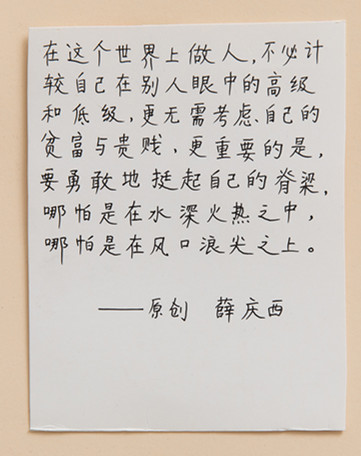 在这个世界上做人,不必计
较自己在别人眼中的高级
和低级,更无需考虑、自己的
贫富与贵贱、更重要的是,
要勇敢地挺起自己的脊梁,
哪怕是在水深火热之中,
哪怕是在风口浪尖之上。
——原创 薛庆西